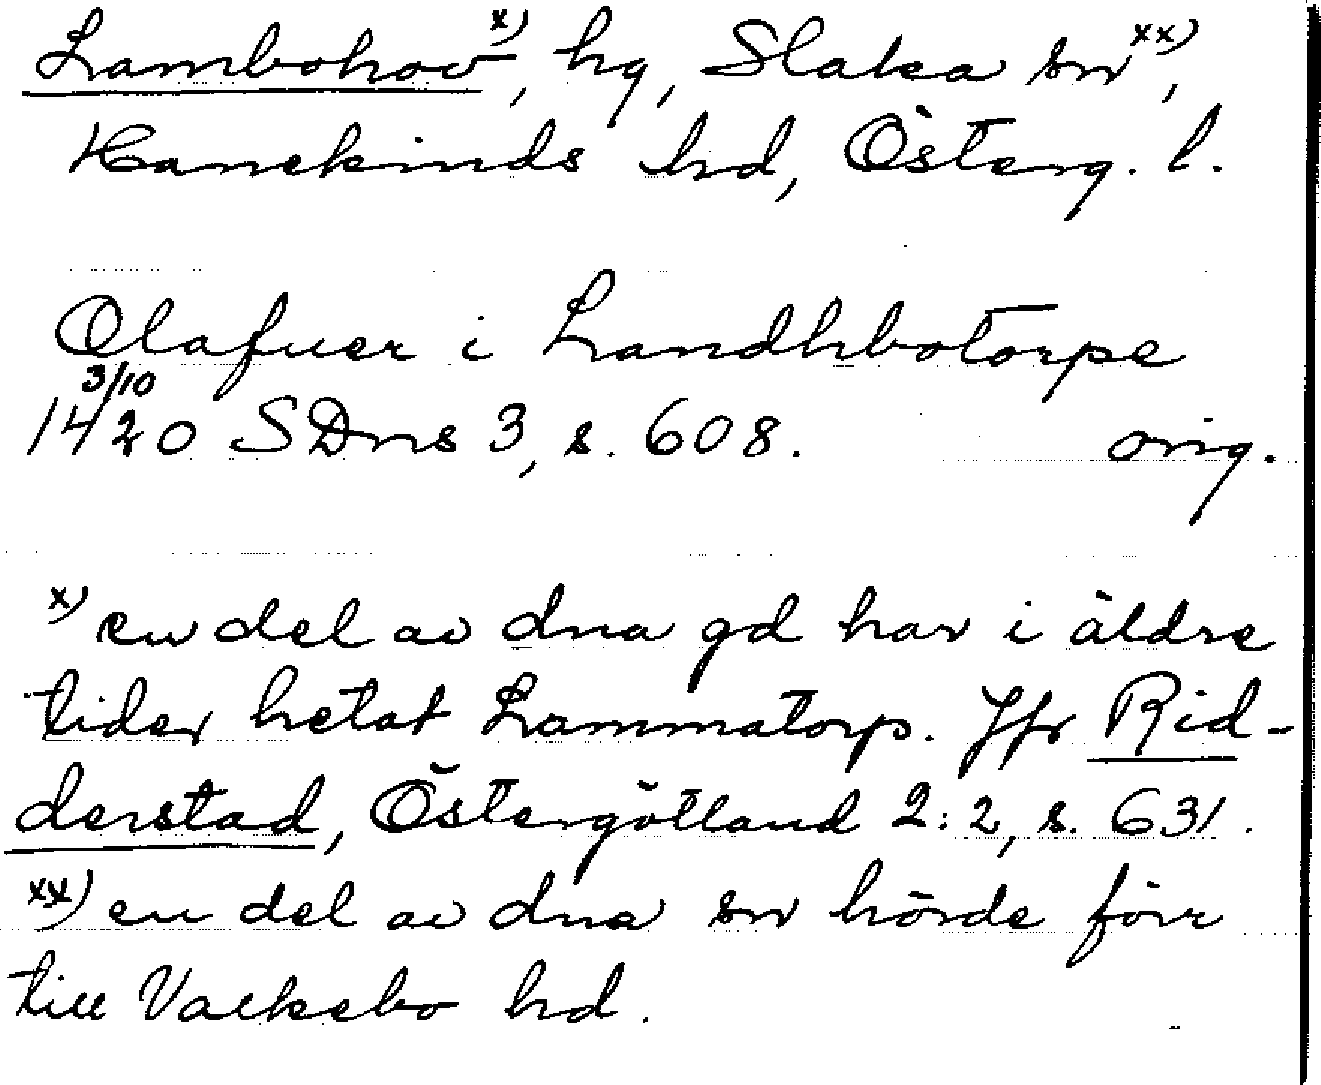 Lambohov x), hg, Slaka sn xx),
Hanekinds hd, Österg. l.
Olafuer i Landhbotorpe
3/10
1420 SDns 3, s. 608. orig.
x) en del av dna gd har i äldre
tider hetat Lammatorp. Jfr Rid-
derstad, Östergötland 2:2, s. 631.
xx) en del av dna sn hörde förr
till Valkebo hd.